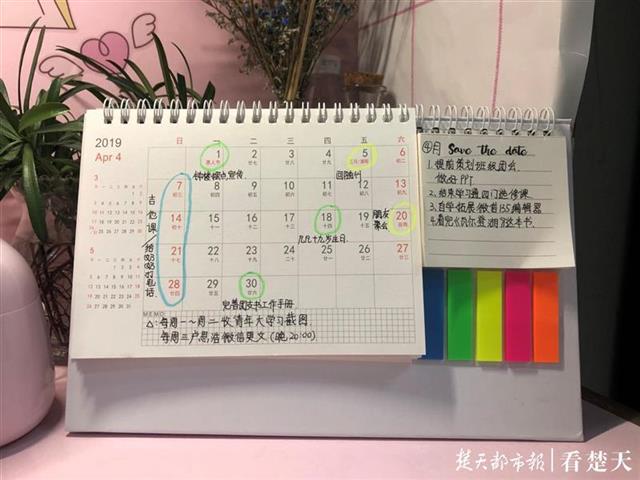 2019
Apr 4
日 一 二 三 四 五 六
1 2 3 4 5 6
愚人节 廿八 廿九 三十 三月/清明 初二
钟楼探点宣传
回随州
7 8 9 10 11 12 13
初三 初四 初五 初六 初七 初八 初九
吉他课、给奶奶打电话
14 15 16 17 18 19 20
初十 十一 十二 十三 十四 十五 谷雨
几几十九岁生日
朋友聚会
21 22 23 24 25 26 27
十七 十八 十九 二十 廿一 廿二 廿三
28 29 30
廿四 廿五 廿六
完善团支书工作手册
3
5
MEMO:
△:每周一~周二收青年大学习截图
每周三卢思浩微信更文(晚20:00)
④月 Save the date
1.提前策划班级团会,
做好PPT
2.结束学习通四门选修课
3.自学拓展:微言135编辑器
4.看完《瓦尔登湖》这本书.
楚天都市报|看楚天